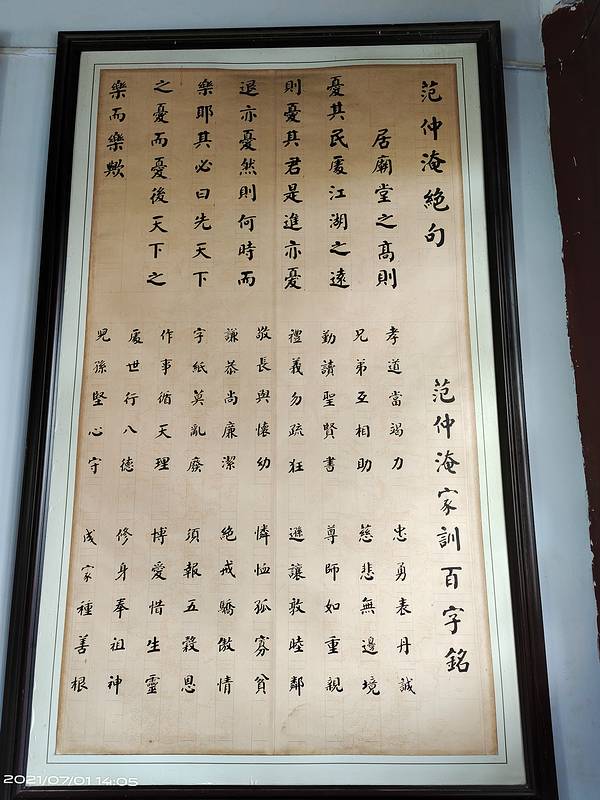 范仲淹絕句
居廟堂之高則
憂其民處江湖之遠
則憂其君是進亦憂
退亦憂然則何時而
樂耶其必曰先天下
之憂而憂後天下之
樂而樂歟
范仲淹家訓百字銘
孝道當竭力
忠勇表丹誠
兄弟互相助
慈悲無邊境
勤讀聖賢書
尊師如重親
禮義勿疏狂
遜讓敦睦鄰
敬長與懷幼
憐恤孤寡貧
謙恭尚廉潔
絕戒驕傲情
字紙莫亂廢
須報五穀恩
作事循天理
博愛惜生靈
處世行八德
修身奉祖神
兒孫堅心守
成家種善根
2021/07/01 14:05